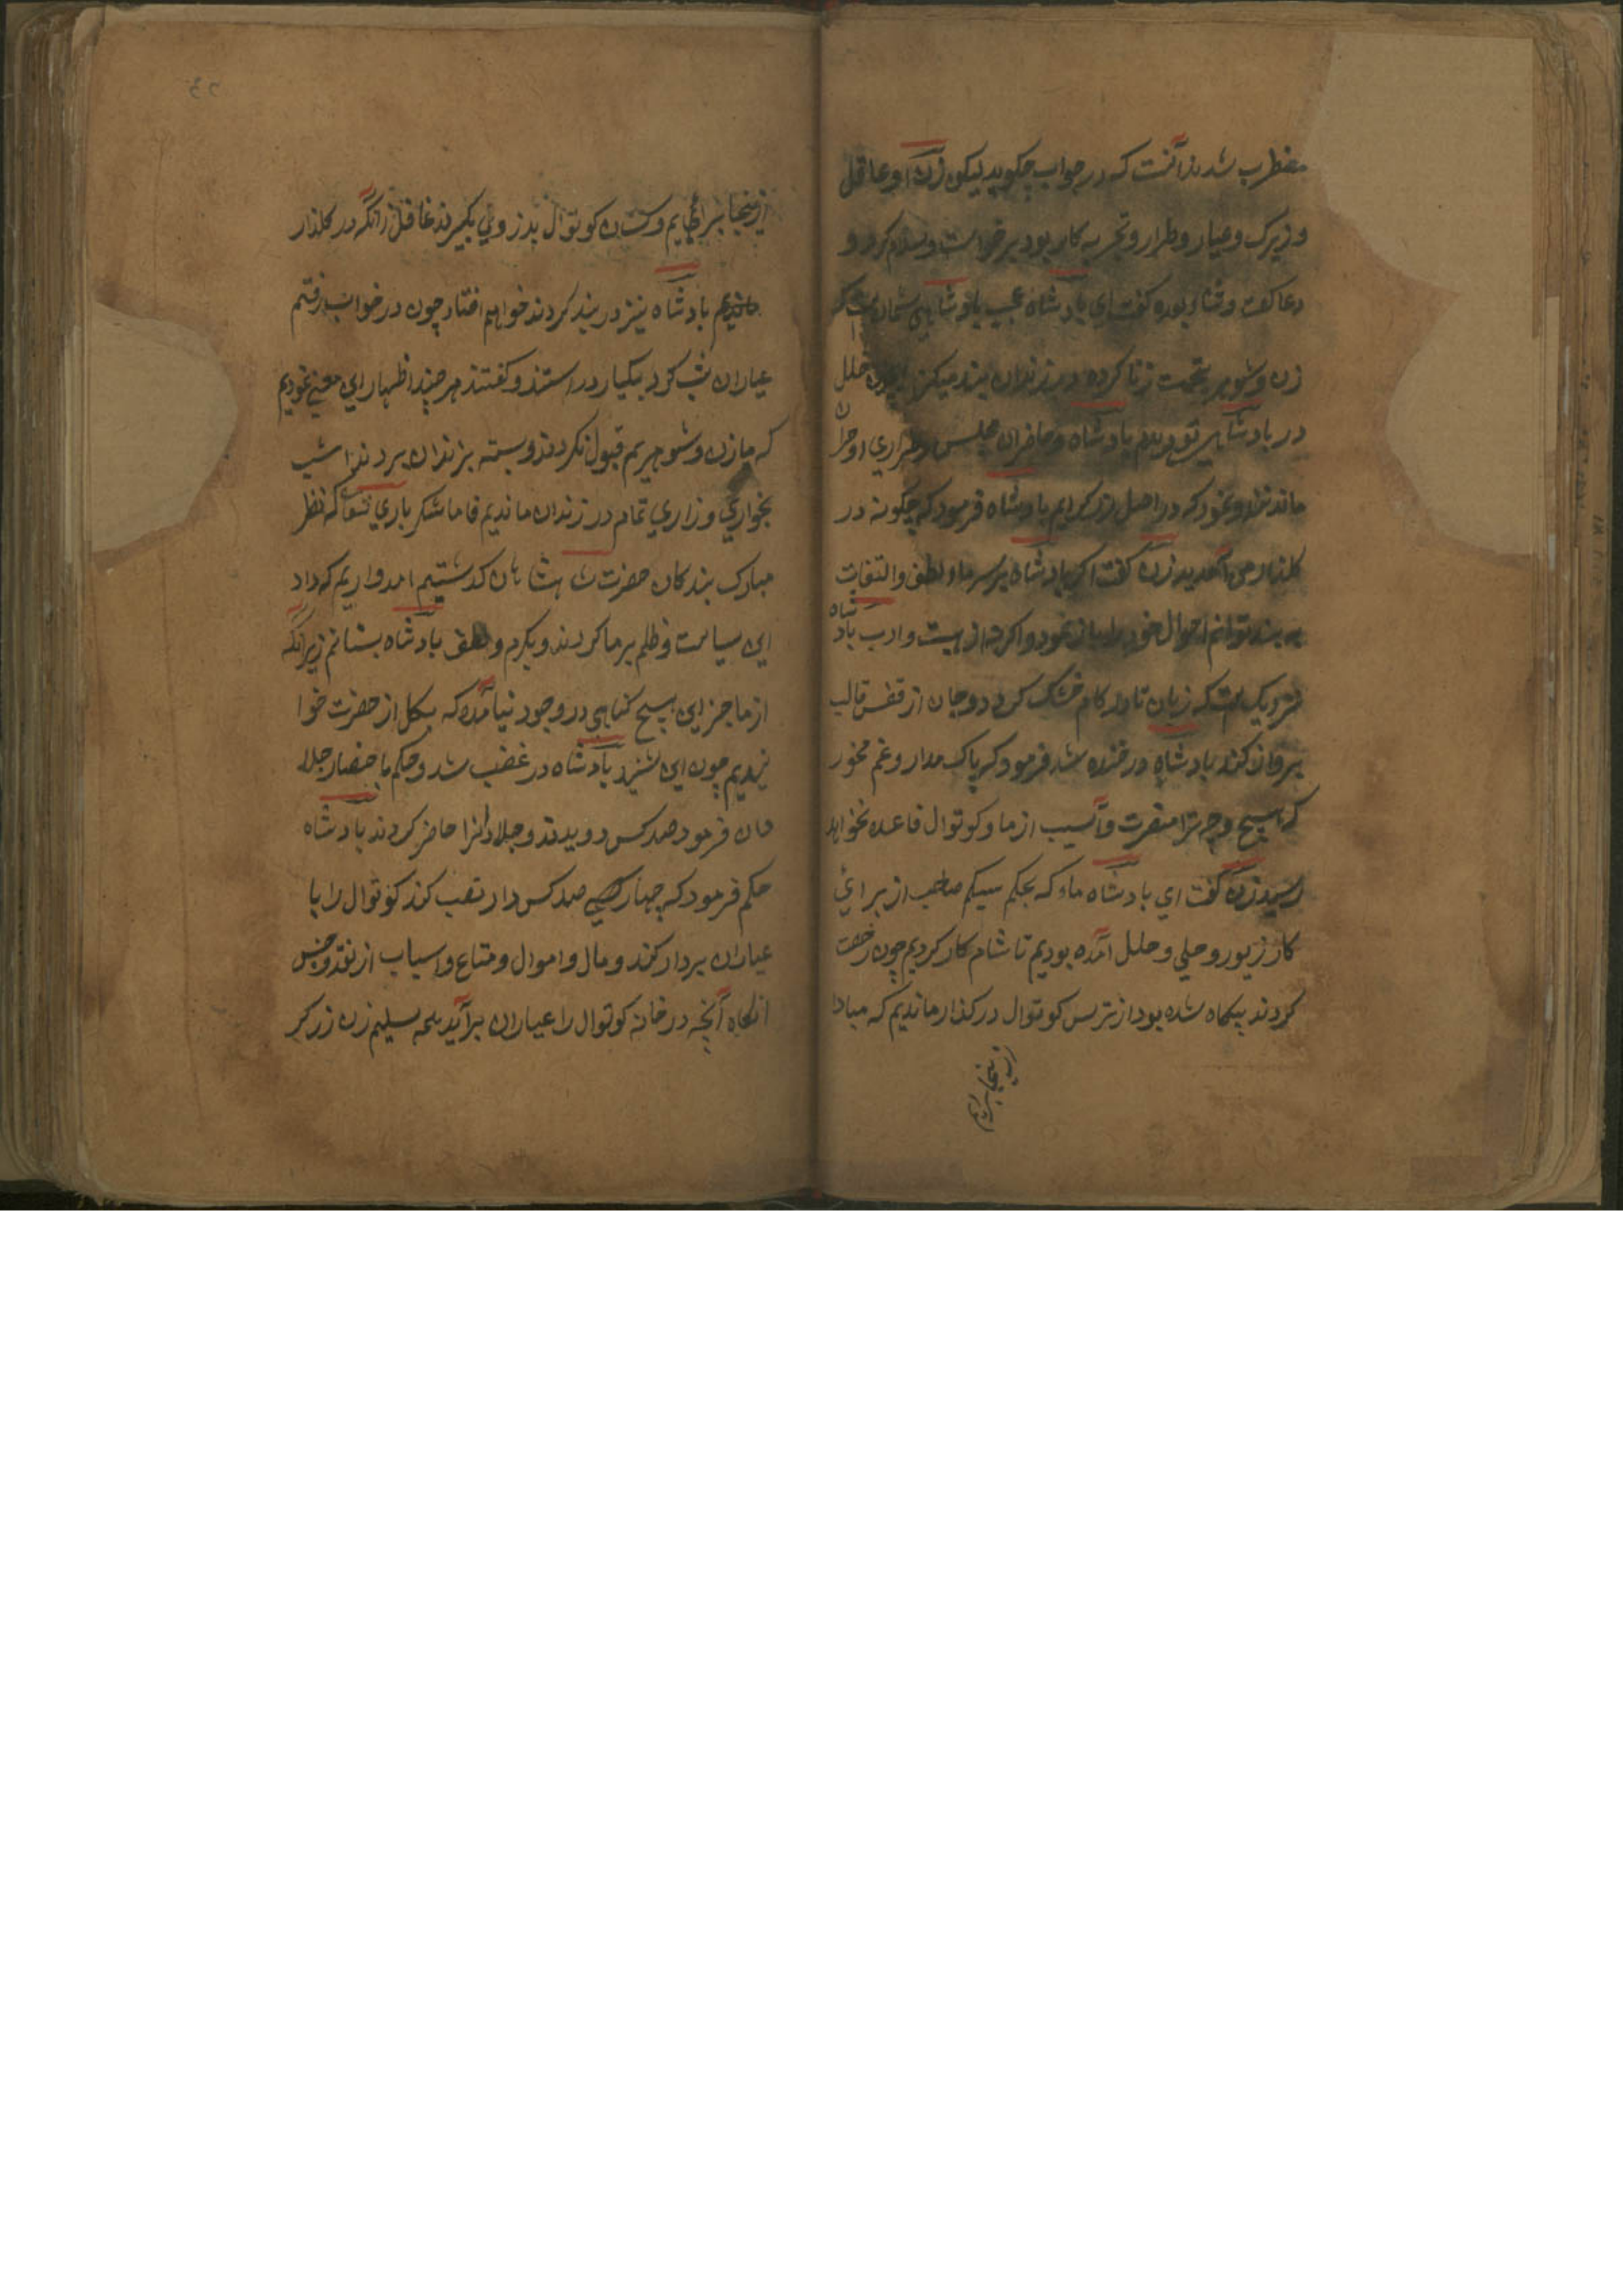 مضطرب شدند آنست که در جواب چگوید لیکن زن او عاقل
و زیرک و عیار و طرار و تجربه کار بود برخواست و سلام کرد و
دعا گفت و ثنا بوده گفت ای پادشاه عجب پادشاهی شمان است که
زن و شوهر بتهمت زنا کرده در زندان بند میکنند خلل
در پادشاهی تو دیدم پادشاه و حاضران مجلس در طراری او حیران
ماندند او نمود که در اصل زرگرایم پادشاه فرمود که چگونه در
گلذار می آمدید زن گفت اگر پادشاه بر سر ما و لطف و التفات
به بیند توانم احوال خود را باز نمود و اگر نه از هیبت و ادب پادشاه
نزدیک است که زبان تا در کام خشک گردد و جان از قفس قالب
پرواز کند پادشاه در خنده شد فرمود که باک مدار و غم مخور
که هیچ وجه ترا مضرت و آسیب از ما و کوتوال قاعده نخواهد
رسید زن گفت ای پادشاه ماه که بحکم سیکم صاحب از برای
کار زیور و حلی و حلل آمده بودیم تا شام کار کردیم چون رخصت
کردند بیگاه شده بود از ترس کوتوال در گذار ماندیم که مبادا
ازینجا برایم
ازینجا برائیم و کسان کوتوال بدزدی بگیرند غافل زانکه در گلذار
ماندیم پادشاه نیز در بند کردند خواهم افتاد چون در خواب رفتم
عیاران شب گرد یکبار در استند و گفتند هر چند اظهار این معنی نمودیم
که ما زن و شوهریم قبول نکردند و بسته بزندان بردند امشب
بخواری و زاری تمام در زندان ماندیم فاما شکر باری تعالی که نظر
مبارک بندگان حضرت شاهنشاهان گذشتیم امدواریم که داد
این سیاست و ظلم بر ما کردند و بکرم و لطف پادشاه بستانم زیرانکه
از ما جز این هیچ گناهی در وجود نیامده که بگل از حضرت خوا
نزدیم چون این شنید پادشاه در غضب شد و حکم باحضار جلا
دان فرمود صد کس دویدند و جلادانرا حاضر کردند پادشاه
حکم فرمود که چهار صد کس دار نصب کند کوتوال را با
عیاران بردار کنند و مال و اموال و متاع و اسباب از نقد و جنس
انگاه آنچه در خانه کوتوال را عیاران برآید همه تسلیم زن زرگر